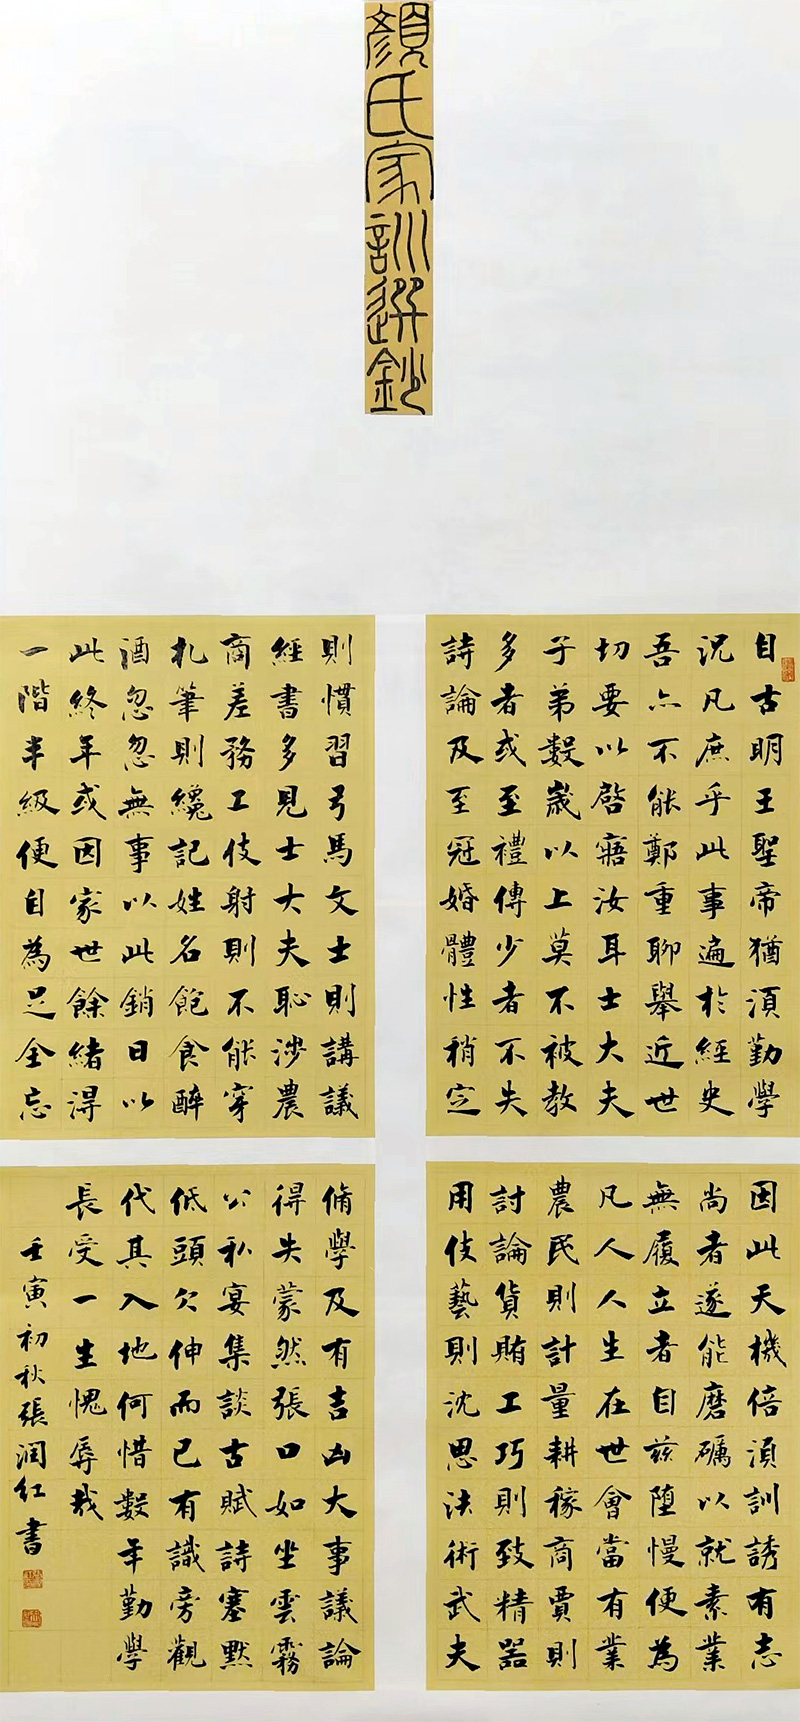 顏氏家訓選鈔
自古明王聖帝猶須勤學
況凡庶乎此事遍於經史
吾亦不能鄭重聊舉近世
切要以啓寤汝耳士大夫
子弟數歲以上莫不被教
多者或至禮傳少者不失
詩論及至冠婚體性稍定
因此天機倍須訓誘有志
尚者遂能磨礪以就素業
無履立者自兹墮慢便為
凡人人生在世會當有業
農民則計量耕稼商賈則
討論貨賄工巧則致精器
用伎藝則沈思法術武夫
則慣習弓馬文士則講議
經書多見士大夫恥涉農
商差務工伎射則不能穿
札筆則纔記姓名飽食醉
酒忽忽無事以此銷日以
此終年或因家世餘緒得
一階半級便自為足全忘
脩學及有吉凶大事議論
得失蒙然張口如坐雲霧
公私宴集談古賦詩塞默
低頭欠伸而已有識旁觀
代其入地何惜數年勤學
長受一生愧辱哉
壬寅初秋張润红書